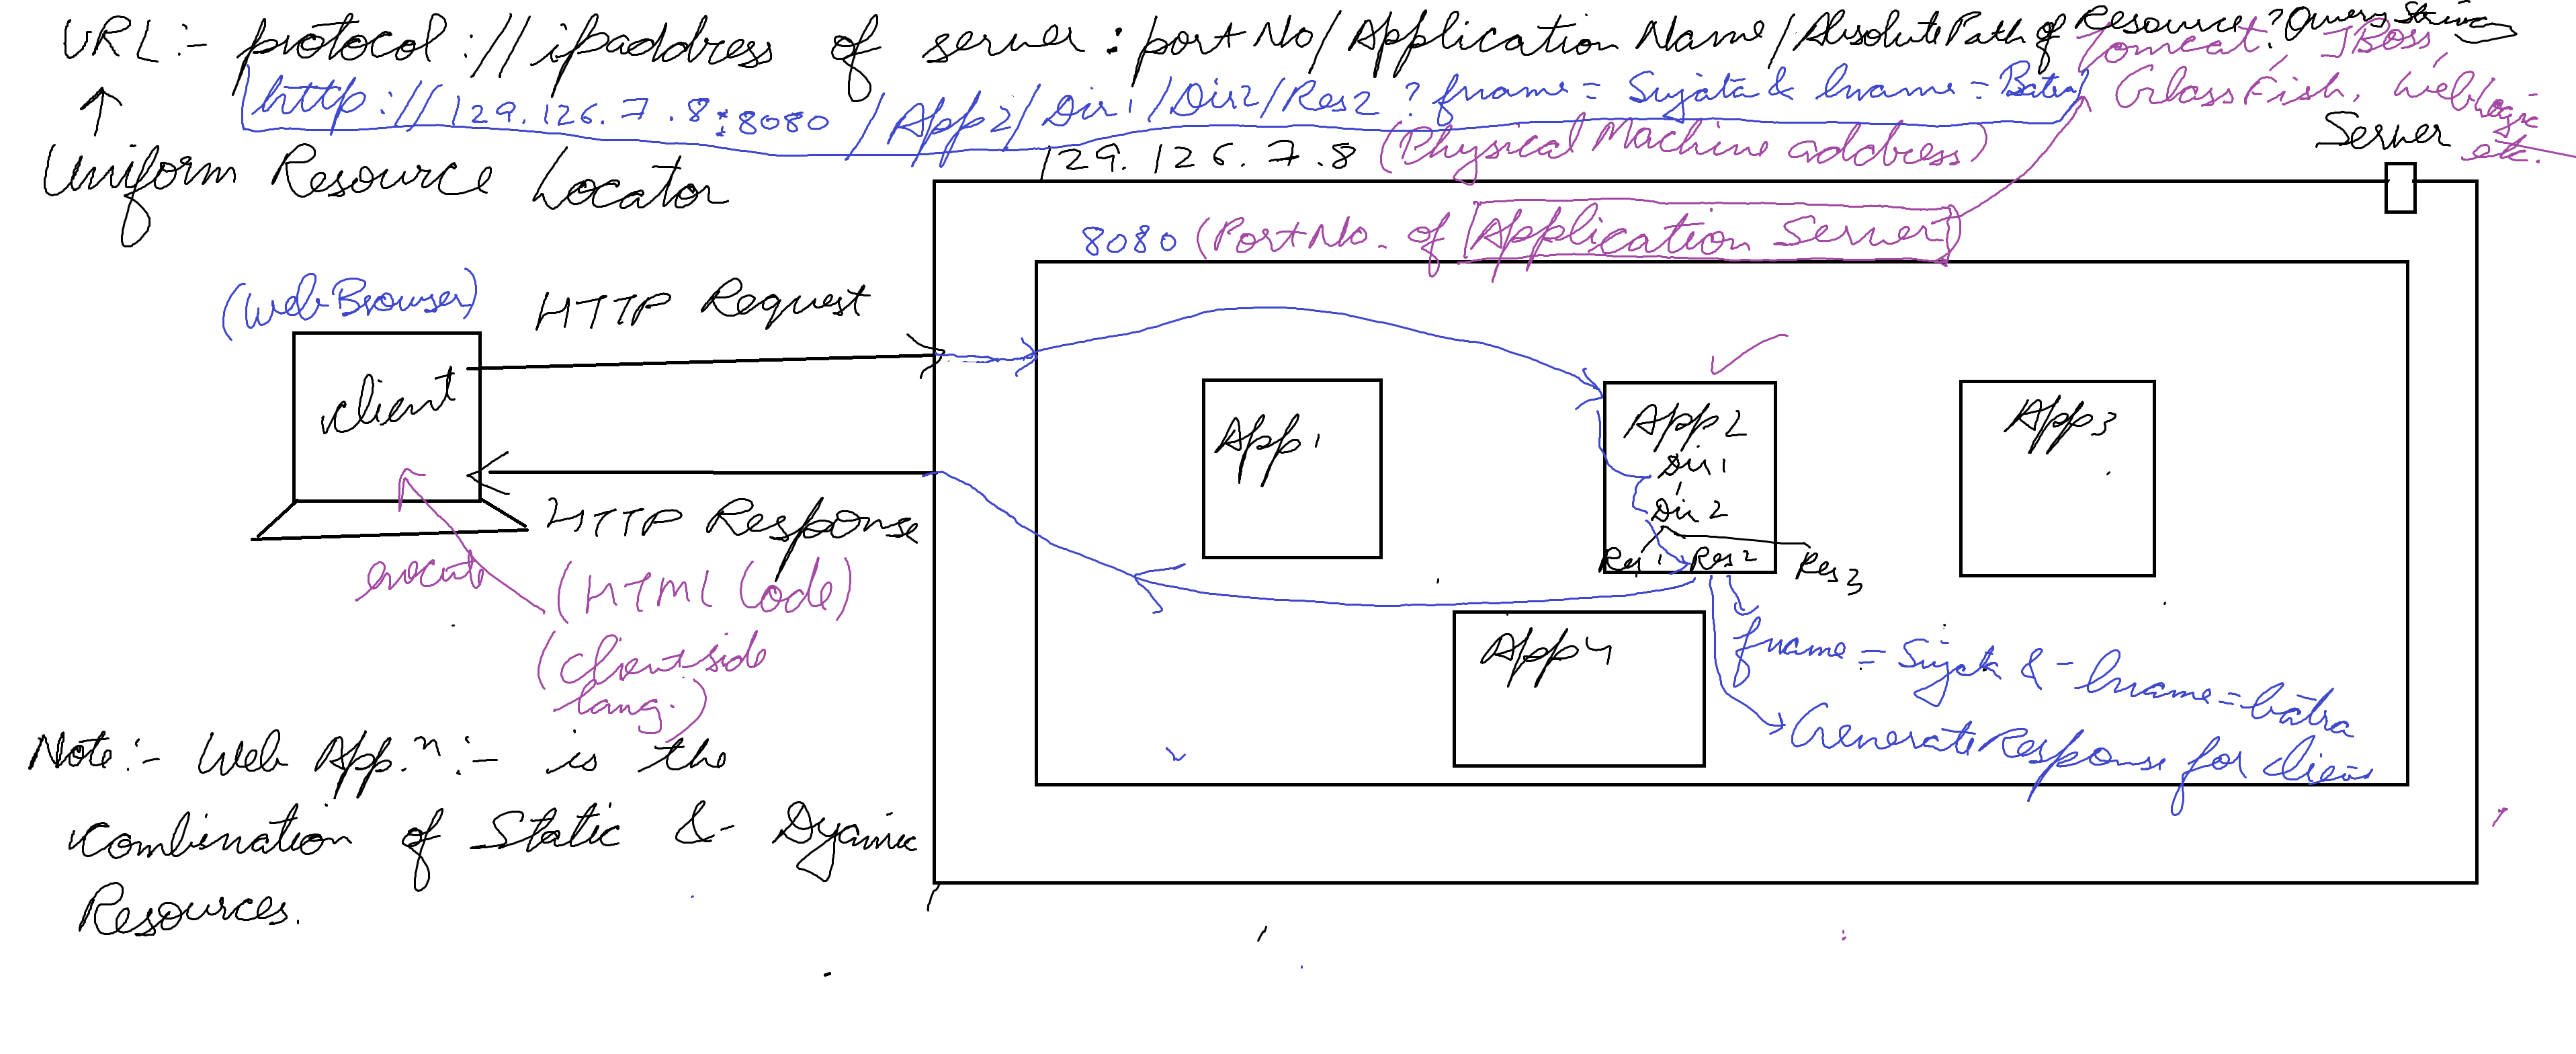 URL :- protocol :// ipaddress of server : port No / Application Name / Absolute Path of Resource ? Query String
http://129.126.7.8:8080/App2/Dir1/Dir2/Res2 ? fname = Sujata & lname = Batra
Tomcat, JBoss,
GlassFish, WebLogic
etc.
Uniform Resource Locator
129.126.7.8 (Physical Machine address)
Server
8080 (Port No. of Application Server)
(Web Browser)
HTTP Request
client
App1
App2
App3
Dir1
Dir2
Res1 Res2 Res3
HTTP Response
execute
(HTML Code)
(Client side
lang.)
App4
fname = Sujata & lname = batra
Generate Response for client
Note :- Web App.n :- is the
combination of Static & Dyamic
Resources.